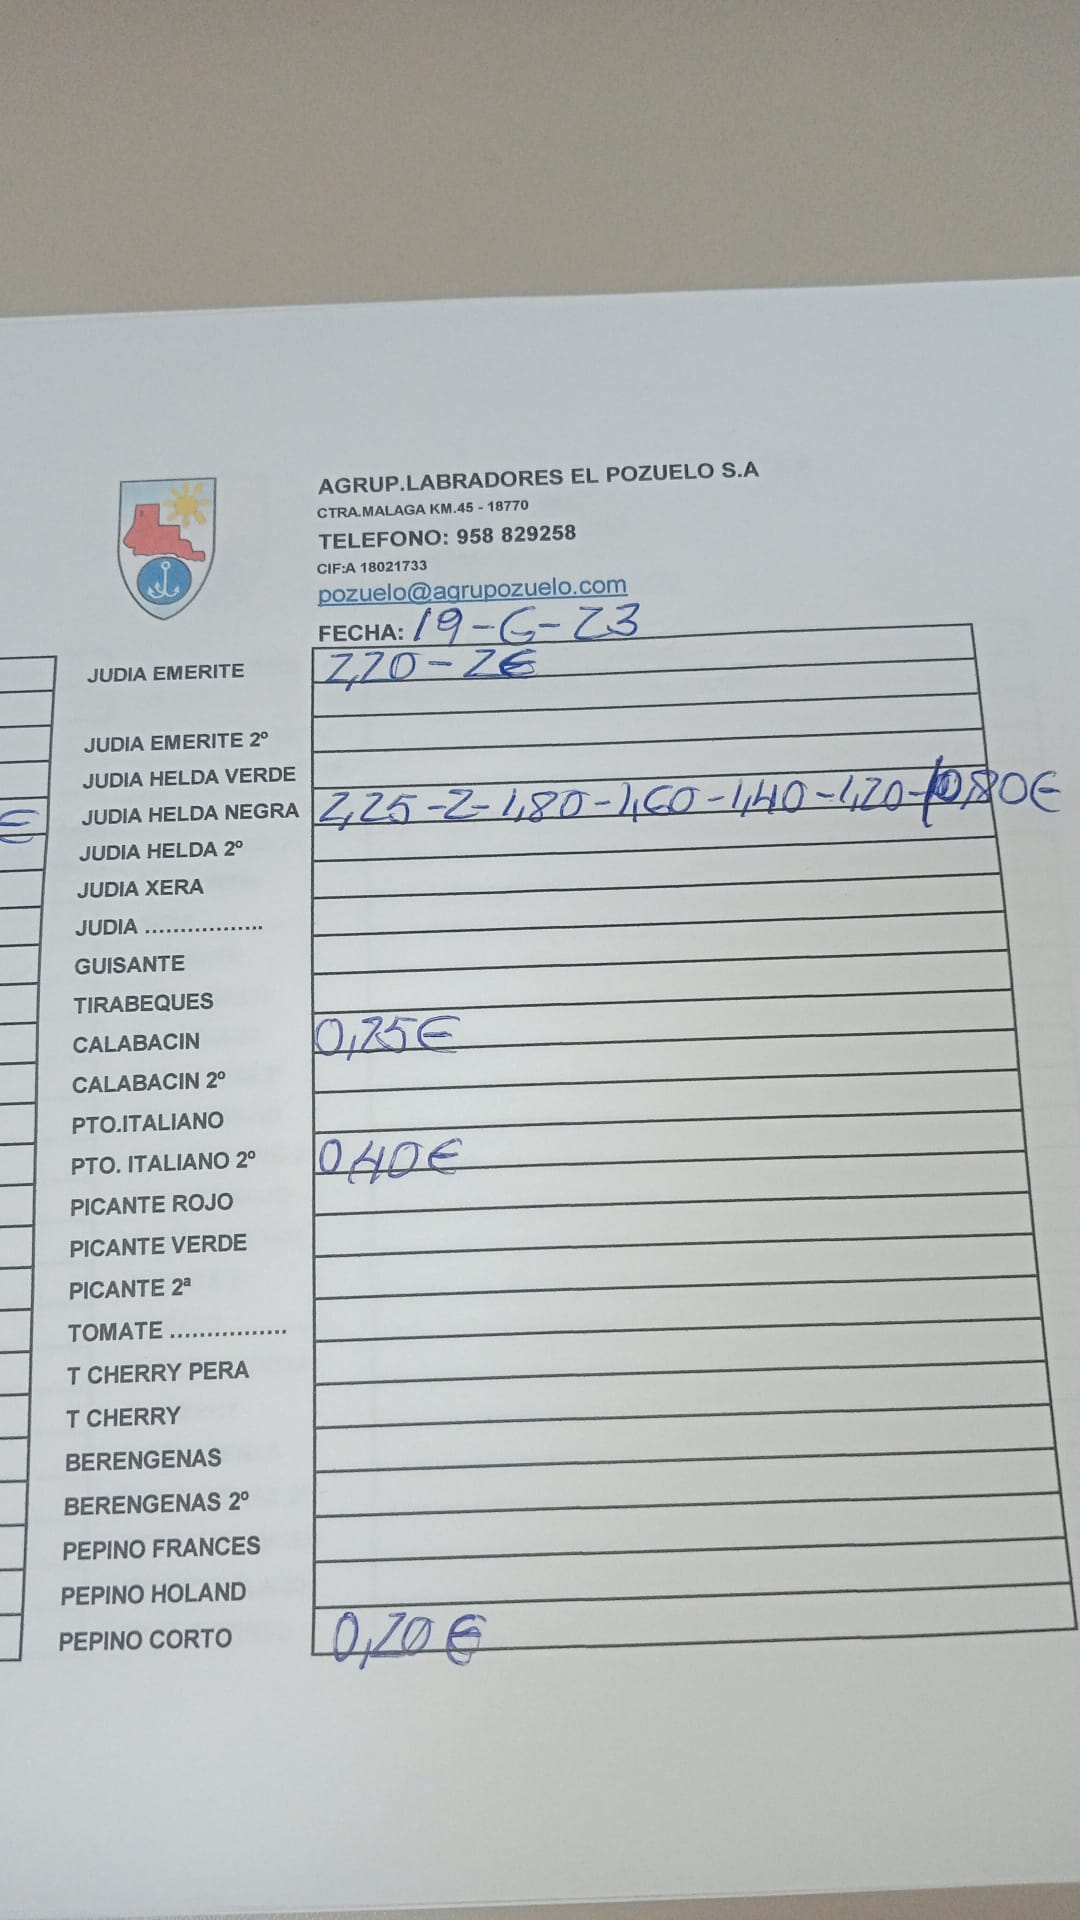 AGRUP.LABRADORES EL POZUELO S.A
CTRA.MALAGA KM.45 - 18770
TELEFONO: 958 829258
CIF:A 18021733
pozuelo@agrupozuelo.com
FECHA: 19-6-23
JUDIA EMERITE 2,20-2€
JUDIA EMERITE 2º
JUDIA HELDA VERDE
JUDIA HELDA NEGRA 2,25-2-1,80-1,60-1,40-1,20-0,80€
JUDIA HELDA 2º
JUDIA XERA
JUDIA .................
GUISANTE
TIRABEQUES
CALABACIN 0,25€
CALABACIN 2º
PTO.ITALIANO
PTO. ITALIANO 2º 0,40€
PICANTE ROJO
PICANTE VERDE
PICANTE 2ª
TOMATE ................
T CHERRY PERA
T CHERRY
BERENGENAS
BERENGENAS 2º
PEPINO FRANCES
PEPINO HOLAND
PEPINO CORTO 0,20€